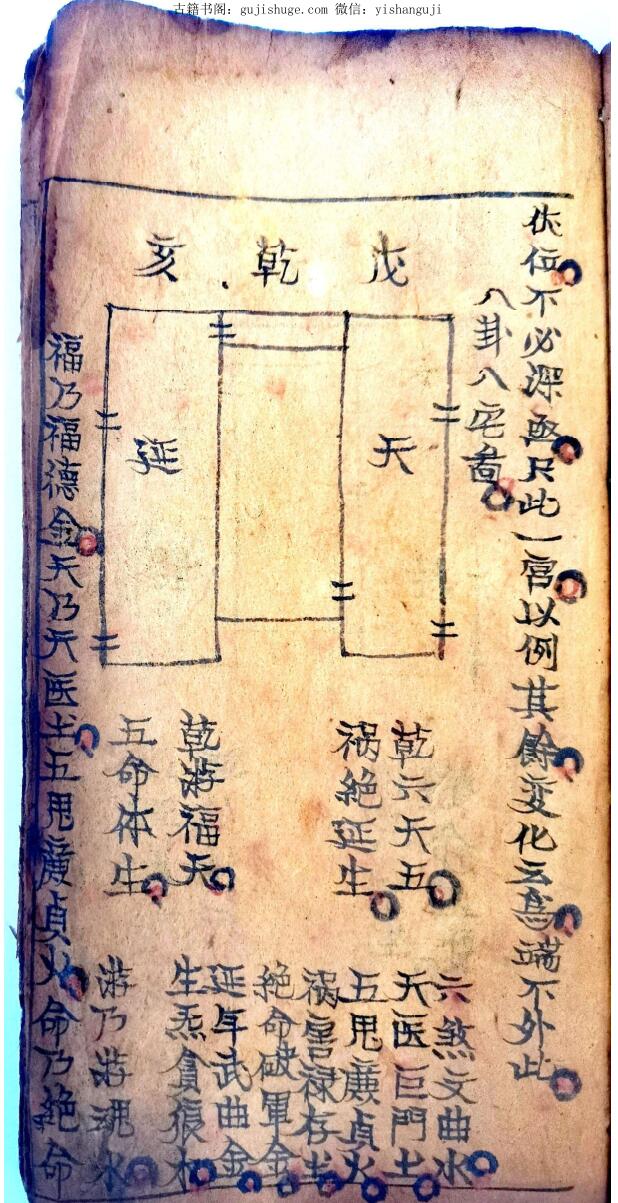 古籍书阁：gujishuge.com 微信：yishanguji
伏位不必深亟只此一宫以例其餘变化云為端不外此
八卦八宅啚
戊 乾 亥
天
延
乾六天五
祸絶延生
乾游福天
五命体生
六煞文曲水
天医巨門土
五鬼廉貞火
祸害禄存土
絶命破軍金
延年武曲金
生炁貪狼木
游乃游魂水
福乃福德金天乃天医土五鬼廉貞火命乃絶命